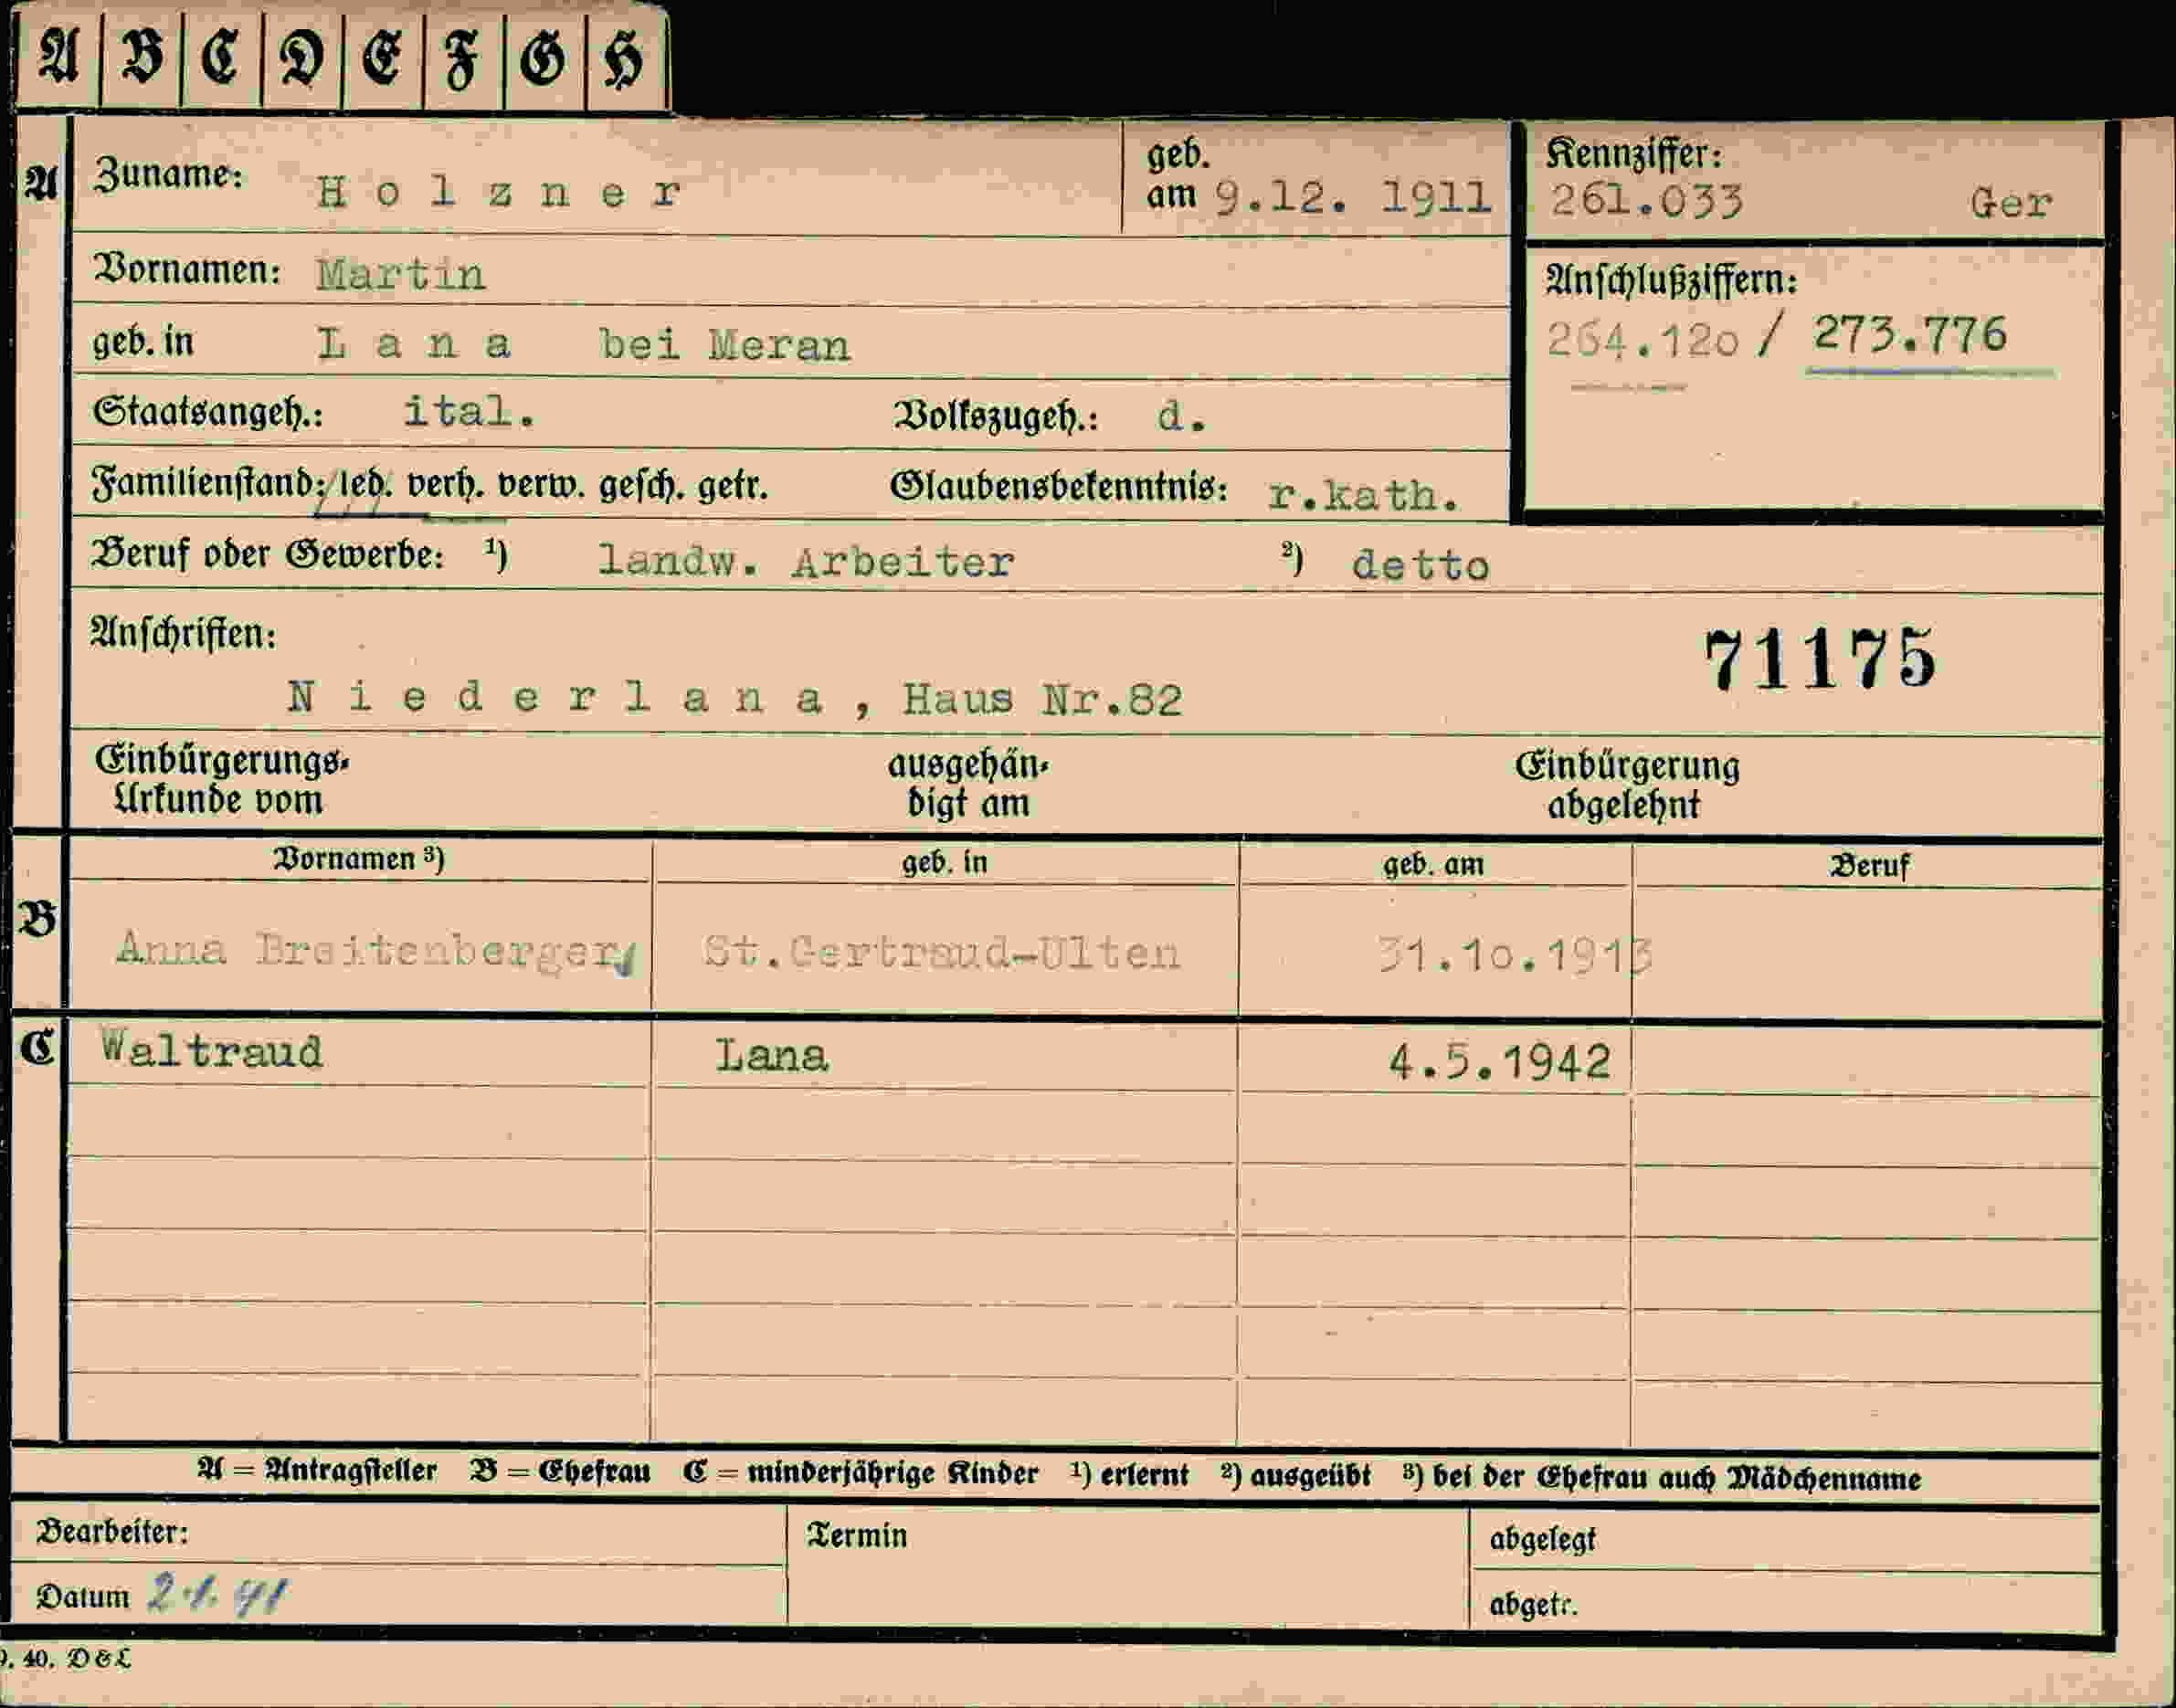 A B C D E F G H
A Zuname: Holzner geb. am 9.12. 1911 Kennziffer: 261.033 Ger
Vornamen: Martin
Anschlußziffern:
geb. in Lana bei Meran 264.120 / 273.776
Staatsangeh.: ital. Volkszugeh.: d.
Familienstand: led. verh. verw. gesch. getr. Glaubensbekenntnis: r.kath.
Beruf oder Gewerbe: 1) landw. Arbeiter 2) detto
Anschriften: 71175
Niederlana, Haus Nr.82
Einbürgerungs- ausgehän- Einbürgerung
Urkunde vom digt am abgelehnt
Vornamen 3) geb. in geb. am Beruf
B Anna Breitenberger St.Gertraud-Ulten 31.10.1913
C Waltraud Lana 4.5.1942
A = Antragsteller B = Ehefrau C = minderjährige Kinder 1) erlernt 2) ausgeübt 3) bei der Ehefrau auch Mädchenname
Bearbeiter: Termin abgelegt
Datum 2.1.41 abgetr.
9. 40. D&L